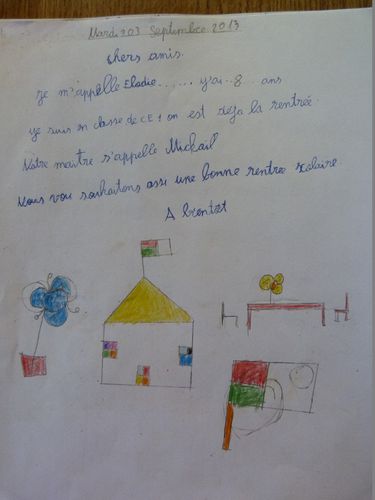 Mardi 03 Septembre 2013
chers amis.
je m'appelle Elodie......, j'ai..8... ans
je suis en classe de CE1 on est déja la rentrée.
Notre maitre s'appelle Mickaïl
Nous vou souhaitons assi une bonne rentrée scolaire
A bientôt